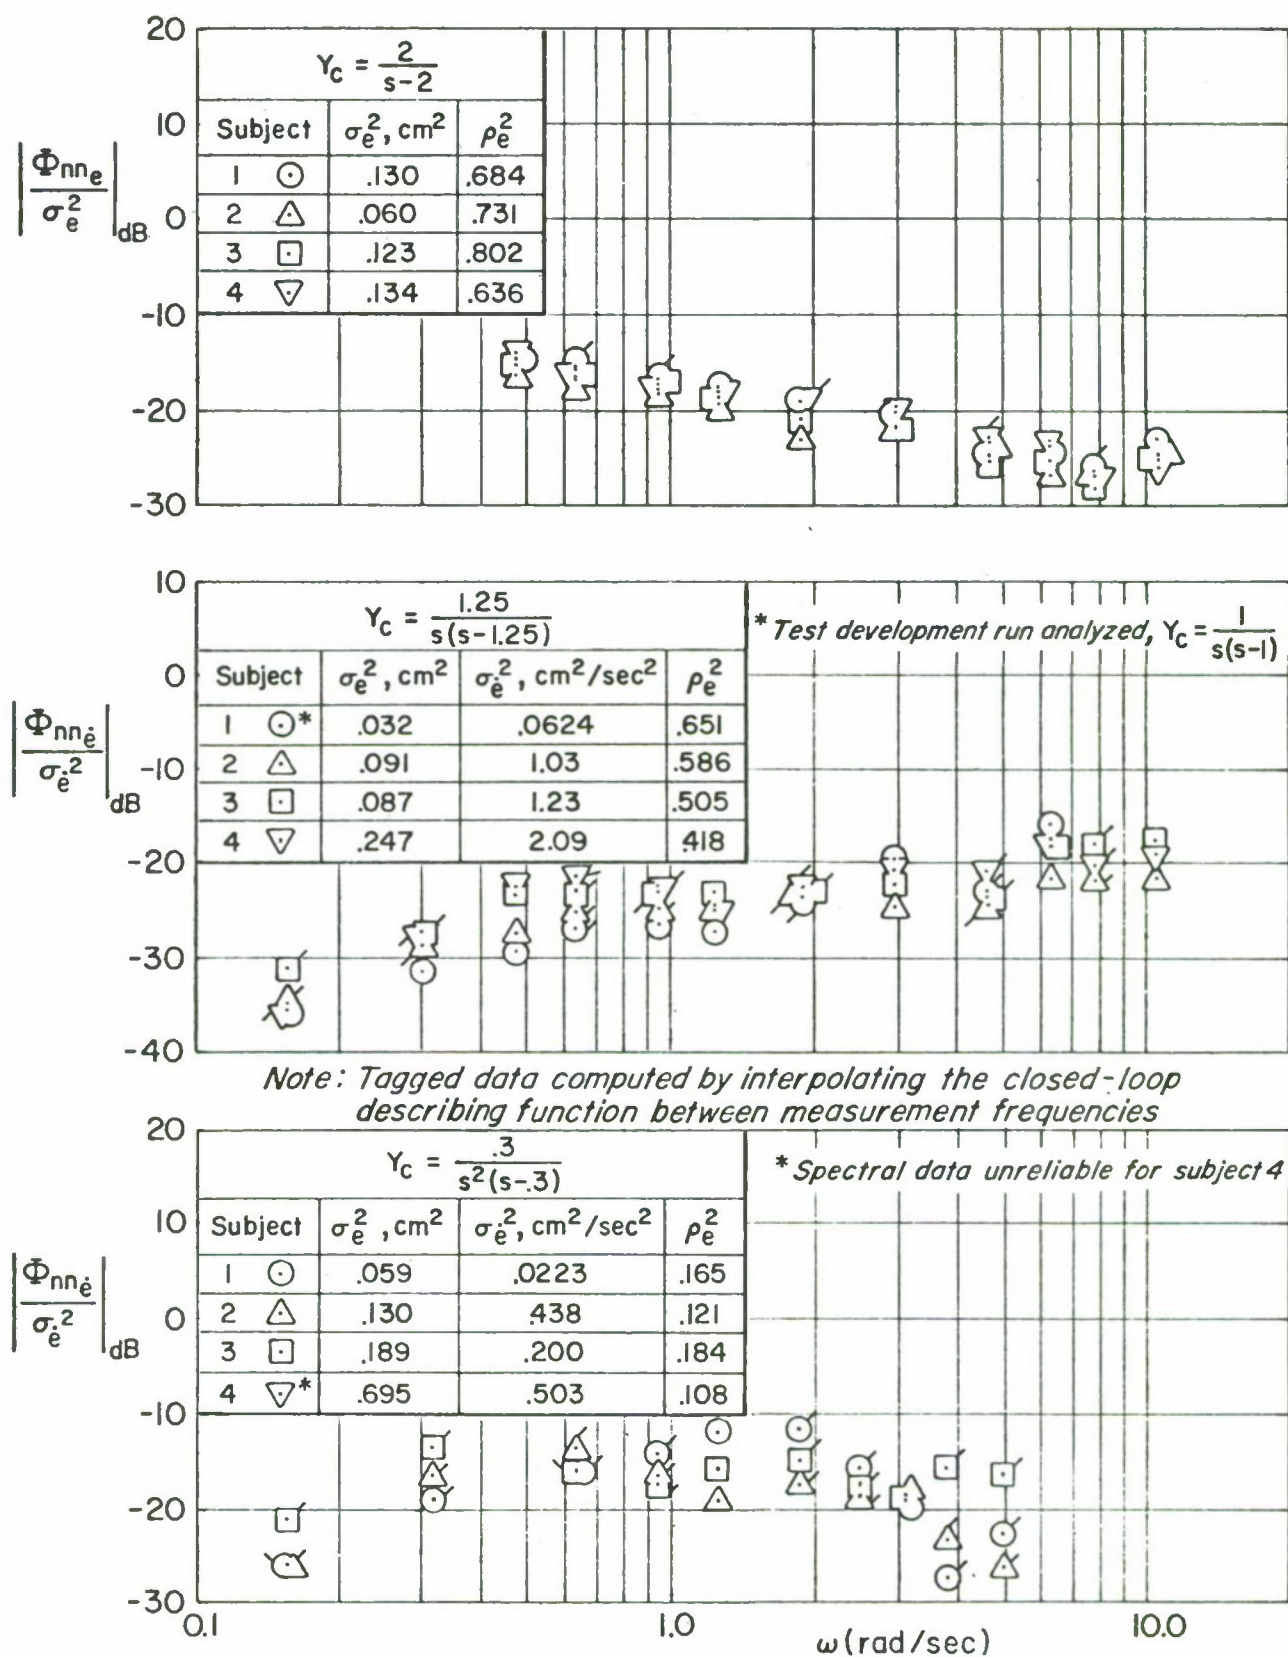 20
10
0
-10
-20
-30
|Φnn_e / σ_e^2|dB
Y_c = 2/(s-2)
Subject σ_e^2, cm^2 ρ_e^2
1 ⊙ .130 .684
2 △ .060 .731
3 ⊡ .123 .802
4 ▽ .134 .636
10
0
-10
-20
-30
-40
|Φnn_ė / σ_ė^2|dB
Y_c = 1.25/(s(s-1.25))
* Test development run analyzed, Y_c = 1/(s(s-1))
Subject σ_e^2, cm^2 σ_ė^2, cm^2/sec^2 ρ_e^2
1 ⊙* .032 .0624 .651
2 △ .091 1.03 .586
3 ⊡ .087 1.23 .505
4 ▽ .247 2.09 .418
Note: Tagged data computed by interpolating the closed-loop
describing function between measurement frequencies
20
10
0
-10
-20
-30
|Φnn_ė / σ_ė^2|dB
Y_c = .3/(s^2(s-.3))
* Spectral data unreliable for subject 4
Subject σ_e^2, cm^2 σ_ė^2, cm^2/sec^2 ρ_e^2
1 ⊙ .059 .0223 .165
2 △ .130 .438 .121
3 ⊡ .189 .200 .184
4 ▽* .695 .503 .108
0.1 1.0 10.0
ω(rad/sec)